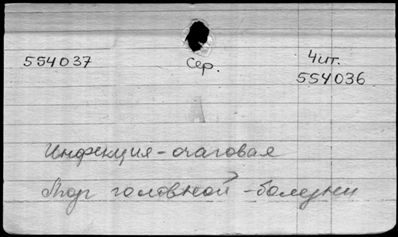 554037
Сер.
Чит.
554036
Инфекция - очаговая
головной - болезни